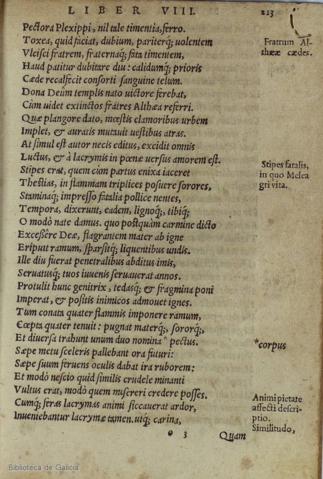 LIBER VIII.
213
Pectora Plexippi, nil tale timentia, ferro.
Toxea, quid faciat, dubium, pariterq; uolentem
Vlcisci fratrem, fraternaq; fata timentem,
Haud patitur dubitare diu: calidumq; prioris
Cæde recalfecit consorti sanguine telum.
Dona Deûm templis nato uictore ferebat,
Cùm uidet extinctos fratres Althæa referri.
Quæ plangore dato, mœstis clamoribus urbem
Implet, & auratis mutauit uestibus atras.
At simul est autor necis editus, excidit omnis
Luctus, & à lacrymis in pœnæ uersus amorem est.
Stipes erat, quem cùm partus enixa iaceret
Thestias, in flammam triplices posuere sorores,
Staminaq; impresso fatalia pollice nentes,
Tempora, dixerunt, eadem, lignoq;, tibiq;
O modò nate damus. quo postquàm carmine dicto
Excessêre Deæ, flagrantem mater ab igne
Eripuit ramum, sparsitq; liquentibus undis.
Ille diu fuerat penetralibus abditus imis,
Seruatusq; tuos iuuenis seruauerat annos.
Protulit hunc genitrix, tedasq; & fragmina poni
Imperat, & positis inimicos admouet ignes.
Tum conata quater flammis imponere ramum,
Cœpta quater tenuit: pugnat materq;, sororq;,
Et diuersa trahunt unum duo nomina * pectus.
Sæpe metu sceleris pallebant ora futuri:
Sæpe suum feruens oculis dabat ira ruborem:
Et modò nescio quid similis crudele minanti
Vultus erat, modò quem misereri credere posses.
Cumq; feras lacrymas animi siccauerat ardor,
Inueniebantur lacrymæ tamen. utq; carina,
o 3
Quam
Fratrum Al-
thææ cædes.
Stipes fatalis,
in quo Melea
gri vita.
*corpus
Animi pietate
affecti descri-
ptio.
Similitudo,
Biblioteca de Galicia